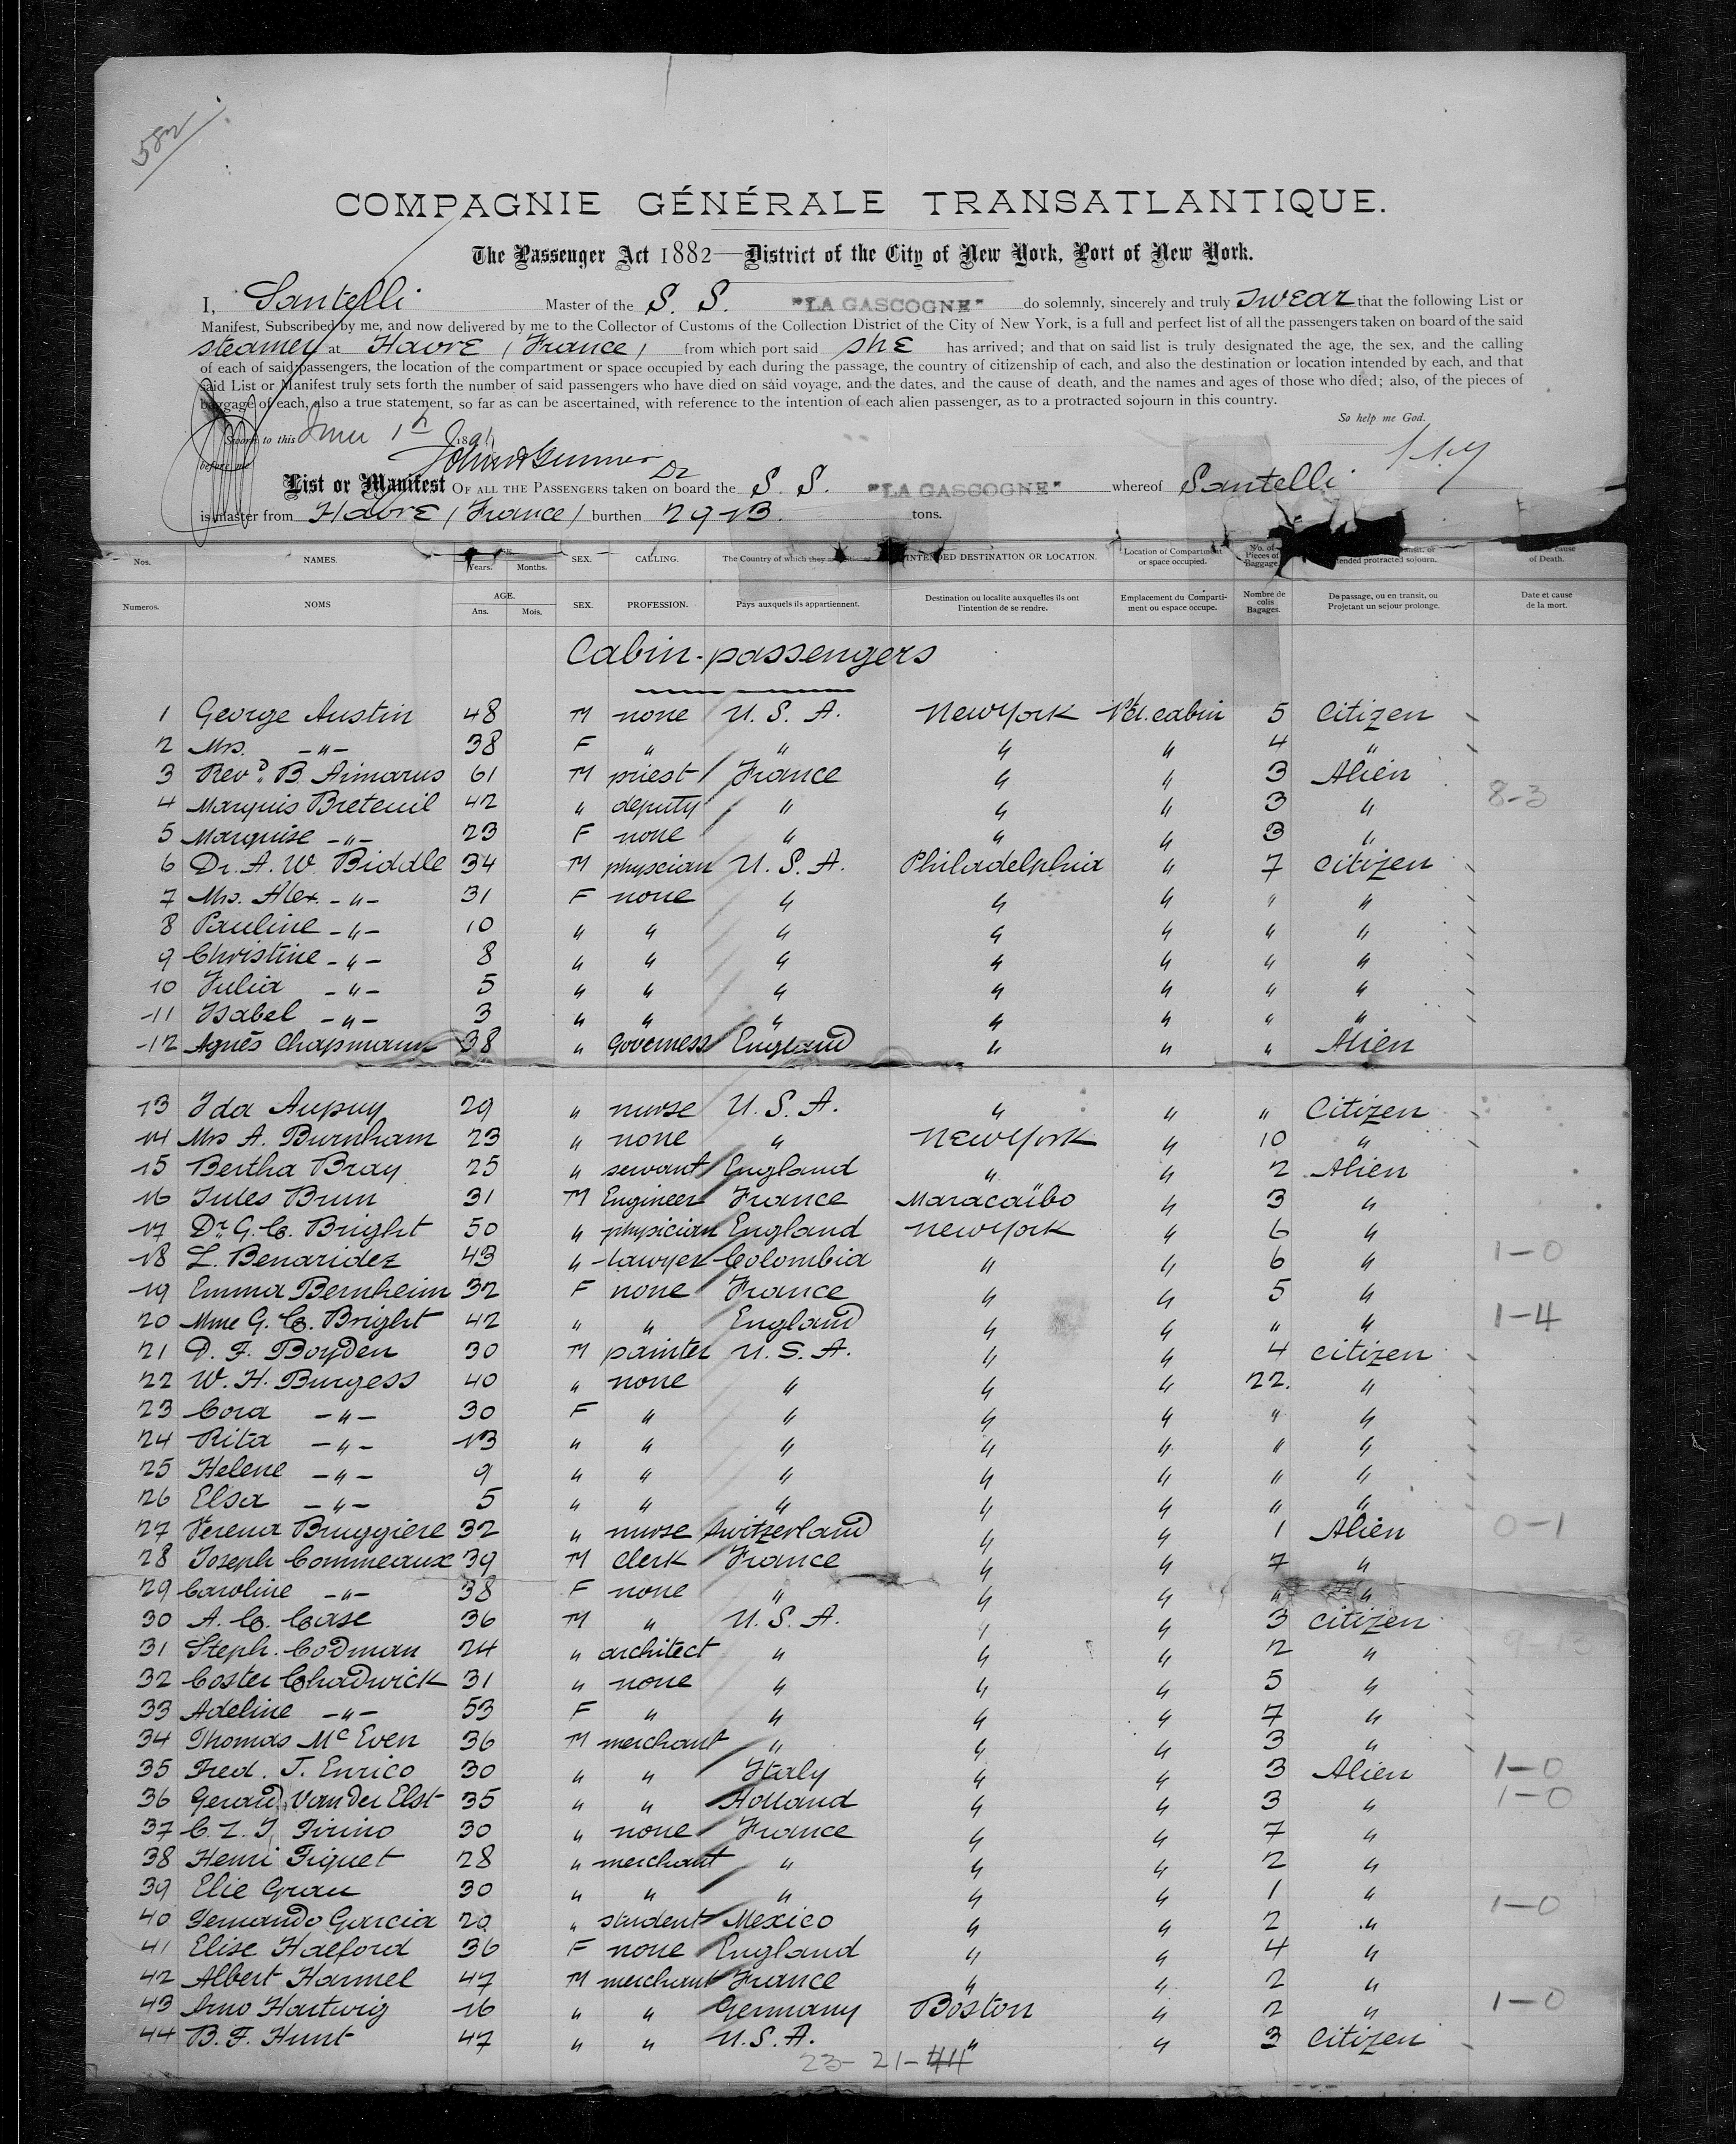 582
COMPAGNIE GÉNÉRALE TRANSATLANTIQUE.
The Passenger Act 1882—District of the City of New York, Port of New York.
I, Santelli Master of the S. S. "LA GASCOGNE" do solemnly, sincerely and truly swear that the following List or
Manifest, Subscribed by me, and now delivered by me to the Collector of Customs of the Collection District of the City of New York, is a full and perfect list of all the passengers taken on board of the said
steamer at Havre (France) from which port said she has arrived; and that on said list is truly designated the age, the sex, and the calling
of each of said passengers, the location of the compartment or space occupied by each during the passage, the country of citizenship of each, and also the destination or location intended by each, and that
said List or Manifest truly sets forth the number of said passengers who have died on said voyage, and the dates, and the cause of death, and the names and ages of those who died; also, of the pieces of
baggage of each, also a true statement, so far as can be ascertained, with reference to the intention of each alien passenger, as to a protracted sojourn in this country.
So help me God.
Sworn to this June 1st 1891
before me
List or Manifest OF ALL THE PASSENGERS taken on board the S. S. "LA GASCOGNE" whereof Santelli
is master from Havre (France) burthen 2913. tons.
Nos. NAMES. Years. Months. SEX. CALLING. The Country of which they INTENDED DESTINATION OR LOCATION. Location of Compartment or space occupied. No. of Pieces of Baggage protracted sojourn. cause of Death.
Numeros. NOMS AGE. Ans. Mois. SEX. PROFESSION. Pays auxquels ils appartiennent. Destination ou localite auxquelles ils ont l'intention de se rendre. Emplacement du Comparti-ment ou espace occupe. Nombre de colis Bagages. De passage, ou en transit, ou Projetant un sejour prolonge. Date et cause de la mort.
Cabin-passengers
1 George Austin 48 M none U. S. A. New York 1st cl. cabin 5 Citizen
2 Mrs. -"- 38 F " " " " 4 "
3 Revd. B. Aimarus 61 M priest France " " 3 Alien
4 Marquis Breteuil 42 " deputy " " " 3 " 8-3
5 Marquise -"- 23 F none " " " 3 "
6 Dr. A. W. Biddle 34 M physcian U. S. A. Philadelphia " 7 citizen
7 Mrs. Alex. -"- 31 F none " " " " "
8 Pauline -"- 10 " " " " " " "
9 Christine -"- 8 " " " " " " "
10 Julia -"- 5 " " " " " " "
11 Isabel -"- 3 " " " " " " "
12 Agnès Chapmann 38 " Governess England " " " Alien
13 Ida Aupuy 29 " nurse U. S. A. " " " Citizen
14 Mrs A. Burnham 23 " none " New York " 10 "
15 Bertha Bray 25 " servant England " " 2 Alien
16 Jules Brun 31 M Engineer France Maracaïbo " 3 "
17 Dr. G. C. Bright 50 " physician England New York " 6 "
18 L. Benaridez 43 " Lawyer Colombia " " 6 " 1-0
19 Emma Bernheim 32 F none France " " 5 "
20 Mme G. C. Bright 42 " " England " " " " 1-4
21 D. F. Boyden 30 M painter U. S. A. " " 4 citizen
22 W. H. Burgess 40 " none " " " 22. "
23 Cora -"- 30 F " " " " " "
24 Rita -"- 13 " " " " " " "
25 Helene -"- 9 " " " " " " "
26 Elsa -"- 5 " " " " " " "
27 Verena Bruggiere 32 " nurse Switzerland " " 1 Alien 0-1
28 Joseph Commeaux 39 M clerk France " " 7 "
29 Caroline -"- 38 F none " " " " "
30 A. C. Case 36 M " U. S. A. " " 3 citizen
31 Steph. Codman 24 " architect " " " 2 "
32 Coster Chadwick 31 " none " " " 5 "
33 Adeline -"- 53 F " " " " 7 "
34 Thomas Mc Even 36 M merchant " " " 3 "
35 Fred. J. Enrico 30 " " Italy " " 3 Alien 1-0
36 Gerard Van der Elst 35 " " Holland " " 3 " 1-0
37 C. L. J. Firino 30 " none France " " 7 "
38 Henri Fiquet 28 " merchant " " " 2 "
39 Elie Grau 30 " " " " " 1 "
40 Fernando Garcia 20 " student Mexico " " 2 " 1-0
41 Elise Halford 36 F none England " " 4 "
42 Albert Harmel 47 M merchant France " " 2 "
43 Arno Hartwig 16 " " Germany Boston " 2 " 1-0
44 B. F. Hunt 47 " " U. S. A. " " 3 Citizen
23- 21- 44